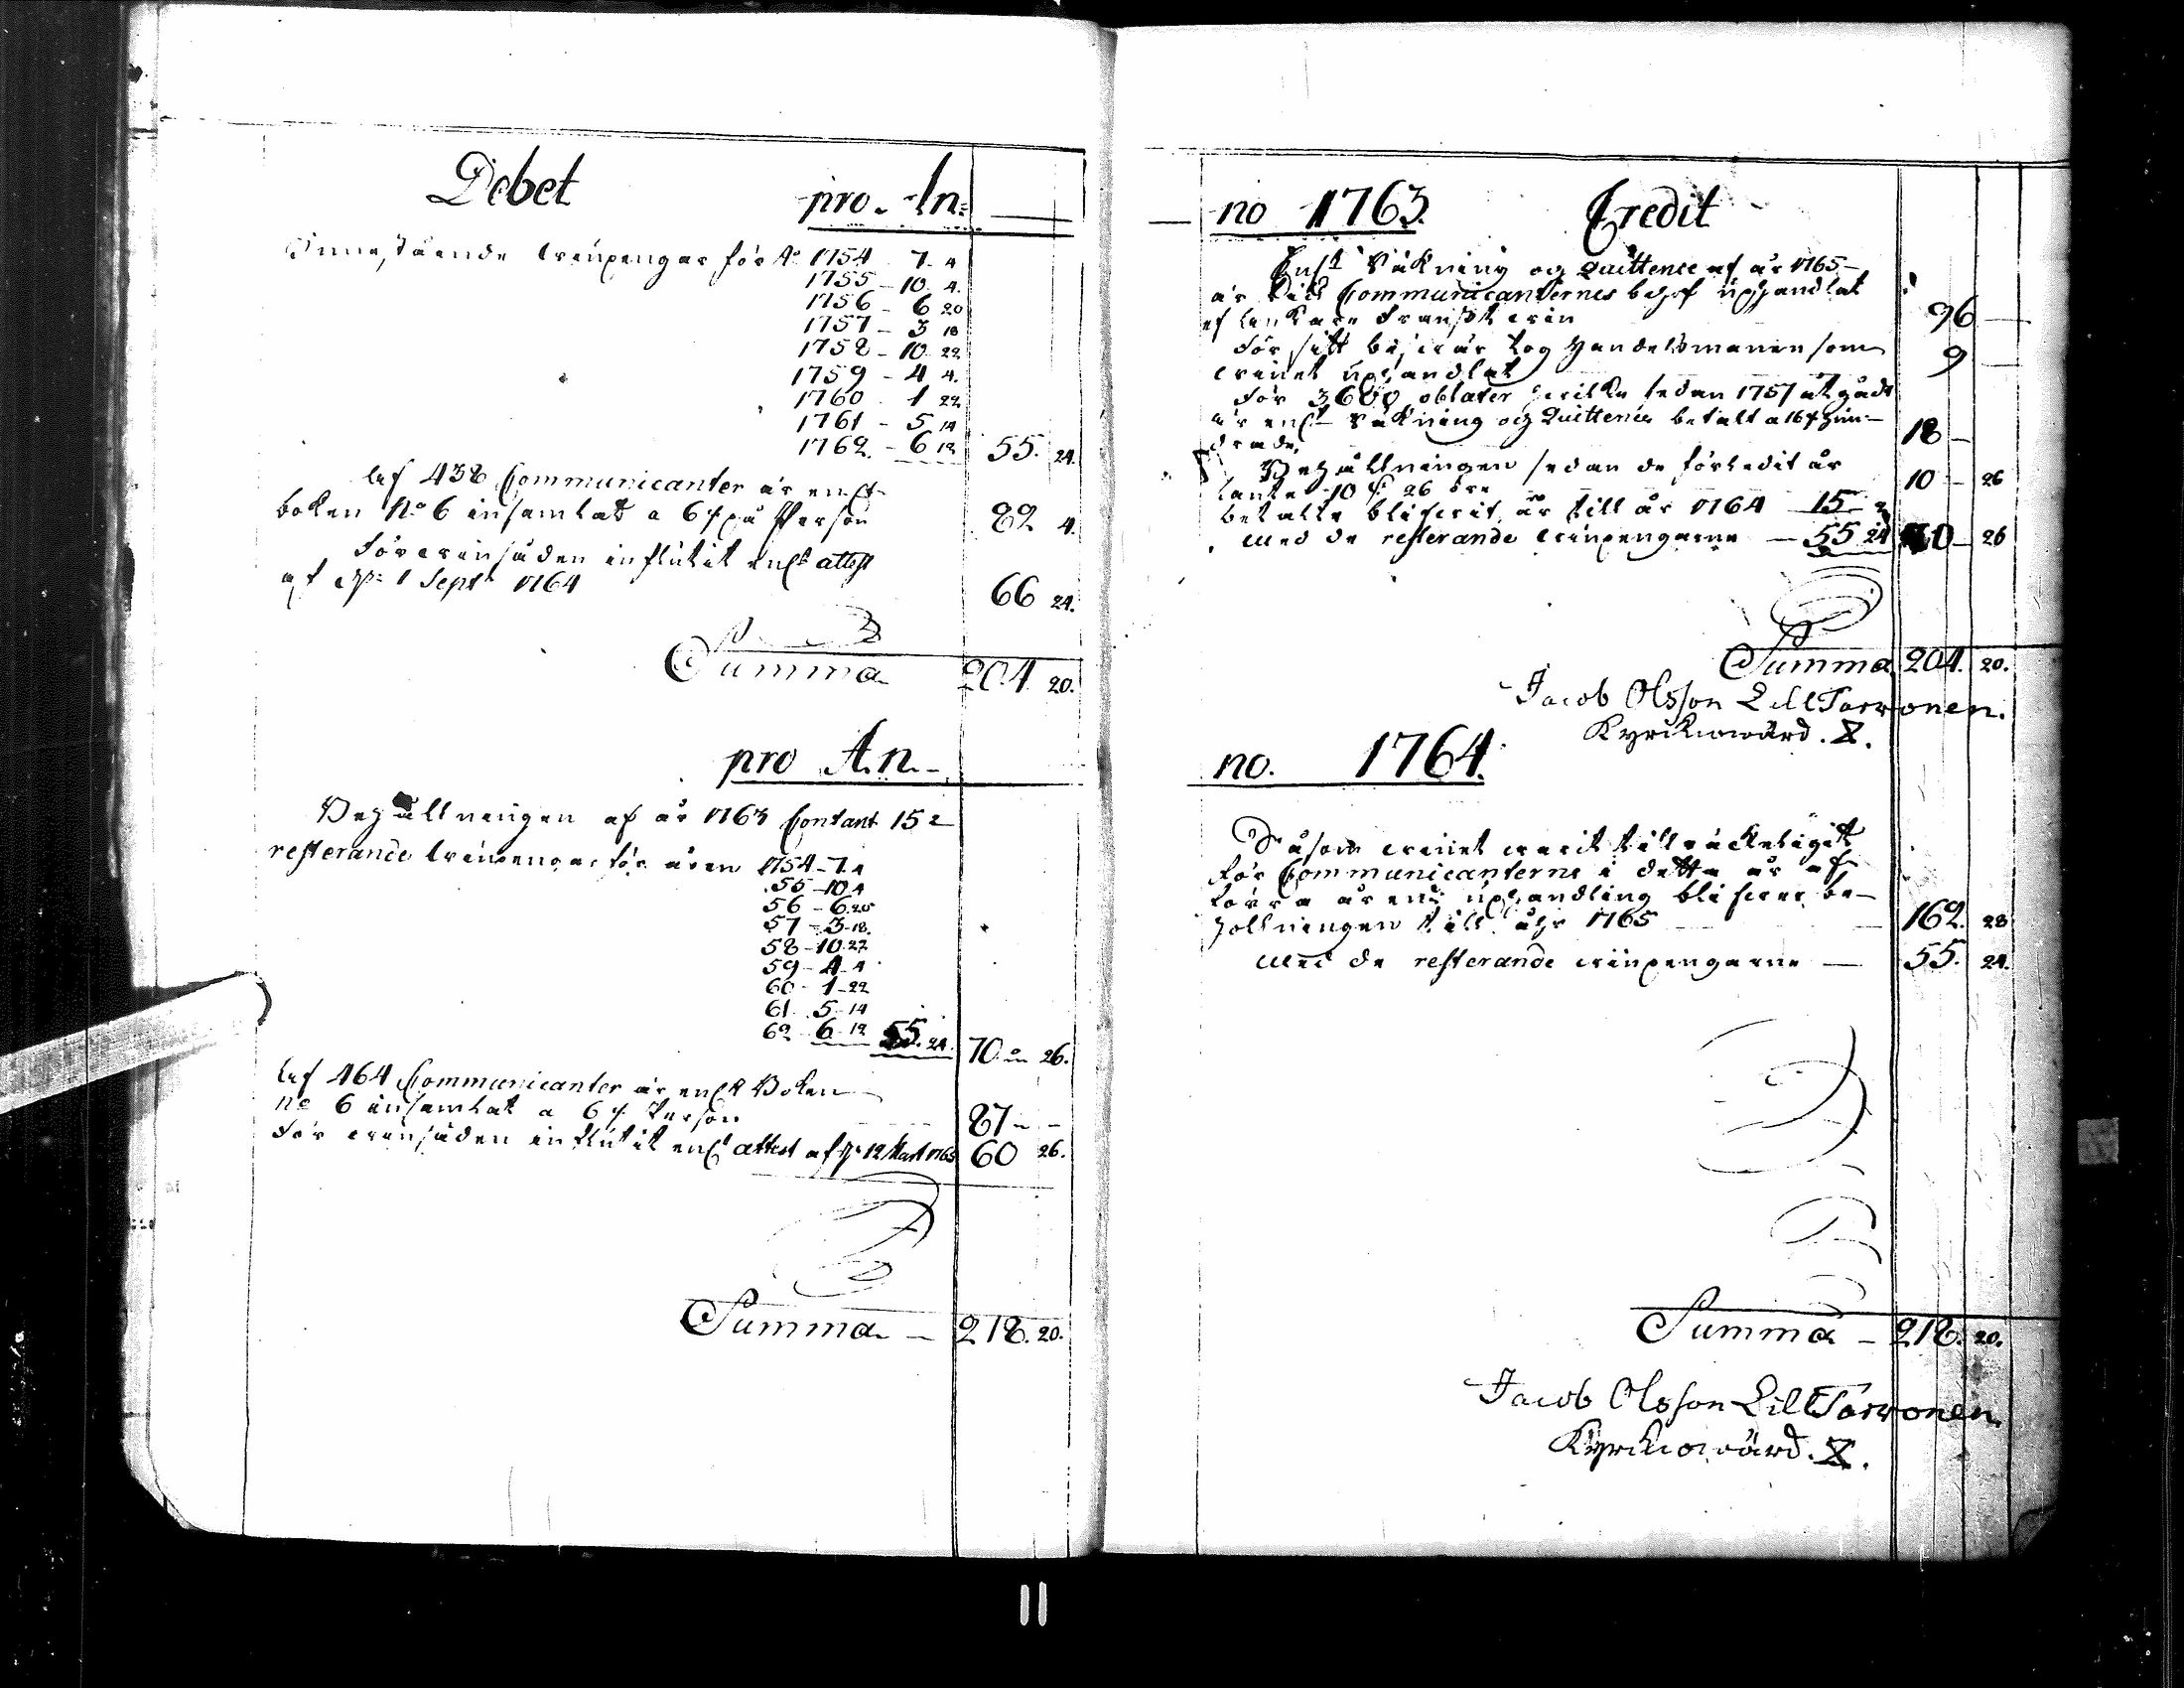 Debet pro. An=
Innestående winpengar för Ao 1754 7. 4
1755 - 10. 4.
1756 - 6 20
1757 - 3 18
1758 - 10. 22.
1759 - 4 4.
1760 - 1 22
1761 - 5 14
1762. - 6 12 55. 24.
Af 438 Communicanter är enl
boken No 6 insamlat a 6 på Person 82 4.
För winsäden inflütit enl attest
af 1 Sept 1764 66 24.
Summa 204. 20.
pro An.-
Behållningen af år 1763 Contant 15 2
resterande winpengar för åren 1754 - 7. 4
55 - 10 4
56 - 6. 20
57 - 3 - 18.
58 - 10. 22
59 - 4 - 4
60 - 1 - 22
61 5 - 14
62 6 - 12 55. 24. 70. 26.
Af 464 Communicanter är enl Boken
No 6 insamlat a 6 Person 87 - -
För winsäden inflütit enl attest af 12 Mart 1765 60 26.
Summa - 218. 20.
no 1763. Credit
Enl Räkning og Quittence af år 1765
är till Communicanternes behof uphandlat
af Franskt win 96
För sitt beswär tog Handelsmannen som
winet uphandlat 9
För 3600 oblater hwilka sedan 1757 åtgådt
är enl Räkning og Quittence betalt a 16 hun-
drade 18 -
Behållningen sedan de förledit år
10 26 öre 10 - 26
betalte blifwit är till år 1764 15 2
Med de resterande winpengarne - 55 24 70 - 26
Summa 204. 20.
Jacob Olsson LillTorronen.
Kyrckiowärd. X.
no. 1764.
Såsom winet warit tillräckeligit
för Communicanterne i detta år af
förra årens uphandling blifwer be-
hollningen till åhr 1765 - 162. 28
Med de resterande winpengarne - 55. 24.
Summa - 218. 20.
Jacob Olsson LillTorronen.
Kyrckiowärd. X.
11